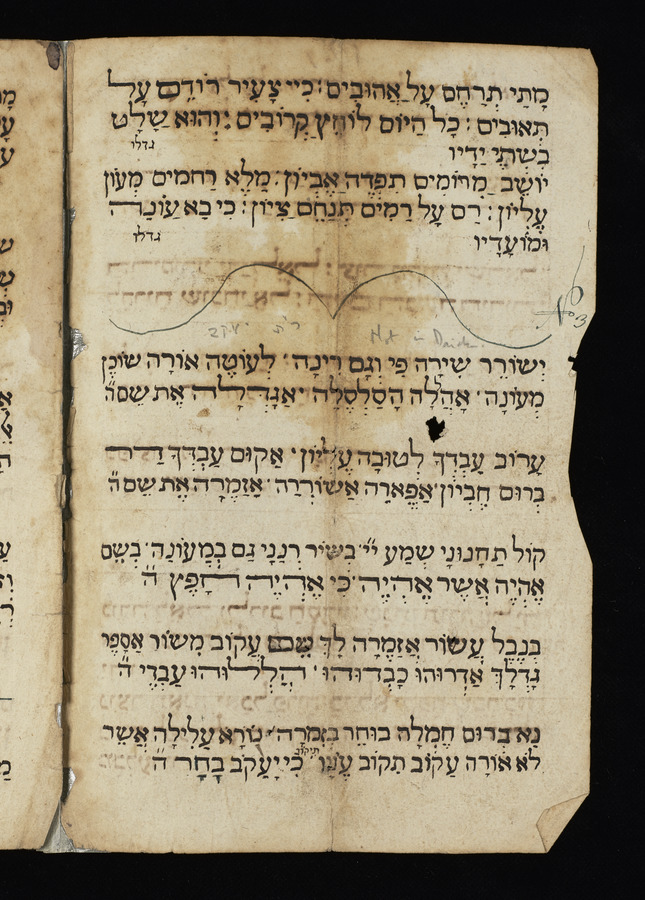 מָתַי תְרַחֵם עַל אֲהוּבִים : כִּי צָעִיר רוֹדֵם עַל
תְּאוּבִים : כָּל הַיוֹם לוֹחֵץ קְרוֹבִים : וְהוּא שָׁלָט
בִּשְׁתֵּי יָדָיו
גדלו
יוֹשֵׁב מְרוֹמִים תִּפְדֶה אֶבְיוֹן : מָלֵא רַחמִים מְעוֹן
עֶלְיוֹן : רָם עַל רָמִים תְּנַחֵם צִיוֹן : כִּי בָא עוֹנָה
וּמוֹעֲדָיו
גדלו
No 3
יְשׁוֹרֵר שִׁירָה פִּי וְגַם רִינָה · לְעוֹטֶה אוֹרָה שׁוֹכֵן
מְעוֹנָה · אֲהַלָה הַסַלְסֵלָה · אֲגַדְּלָה אֶת שֵׁם ה
עֲרוֹב עַבְדְךָ לְטוֹבָה עֶלְיוֹן · אָקוּם עַבְדְּךָ
בְּרוּם חֶבְיוֹן · אֲפָאֵרָה אֲשׁוֹרֵרָה · אֲזַמְרָה אֶת שֵׁם ה
קוֹל תַחֲנוּנִי שְׁמַע יי בְּשִׁיר רַנְּנִי גַם בַּמְעוֹנָה · בְּשֵׁם
אֶהְיֶה אֲשֶׁר אֶהְיֶה · כִּי אֶהְיֶה חָפֵץ ה
בְּנֵבֶל עָשׂוֹר אֲזַמְרָה לָךְ שֵׁם עָקוֹב מִשׁוֹר אֲסַפֵּר
גָדְלָךְ אַדְרוּהוּ כַּבְּדוּהוּ · הַלְלוּהוּ עַבְדֵי ה
נָא בְּרוּם חֶמְלָה בּוֹחֵר בְּזִמְרָה · נוֹרָא עֲלִילָה אֲשֶׁר
לֹא אוֹרָה עָקוֹב תִקוֹב עֲוֹנוֹ כִּי יַעֲקֹב בָּחַר ה